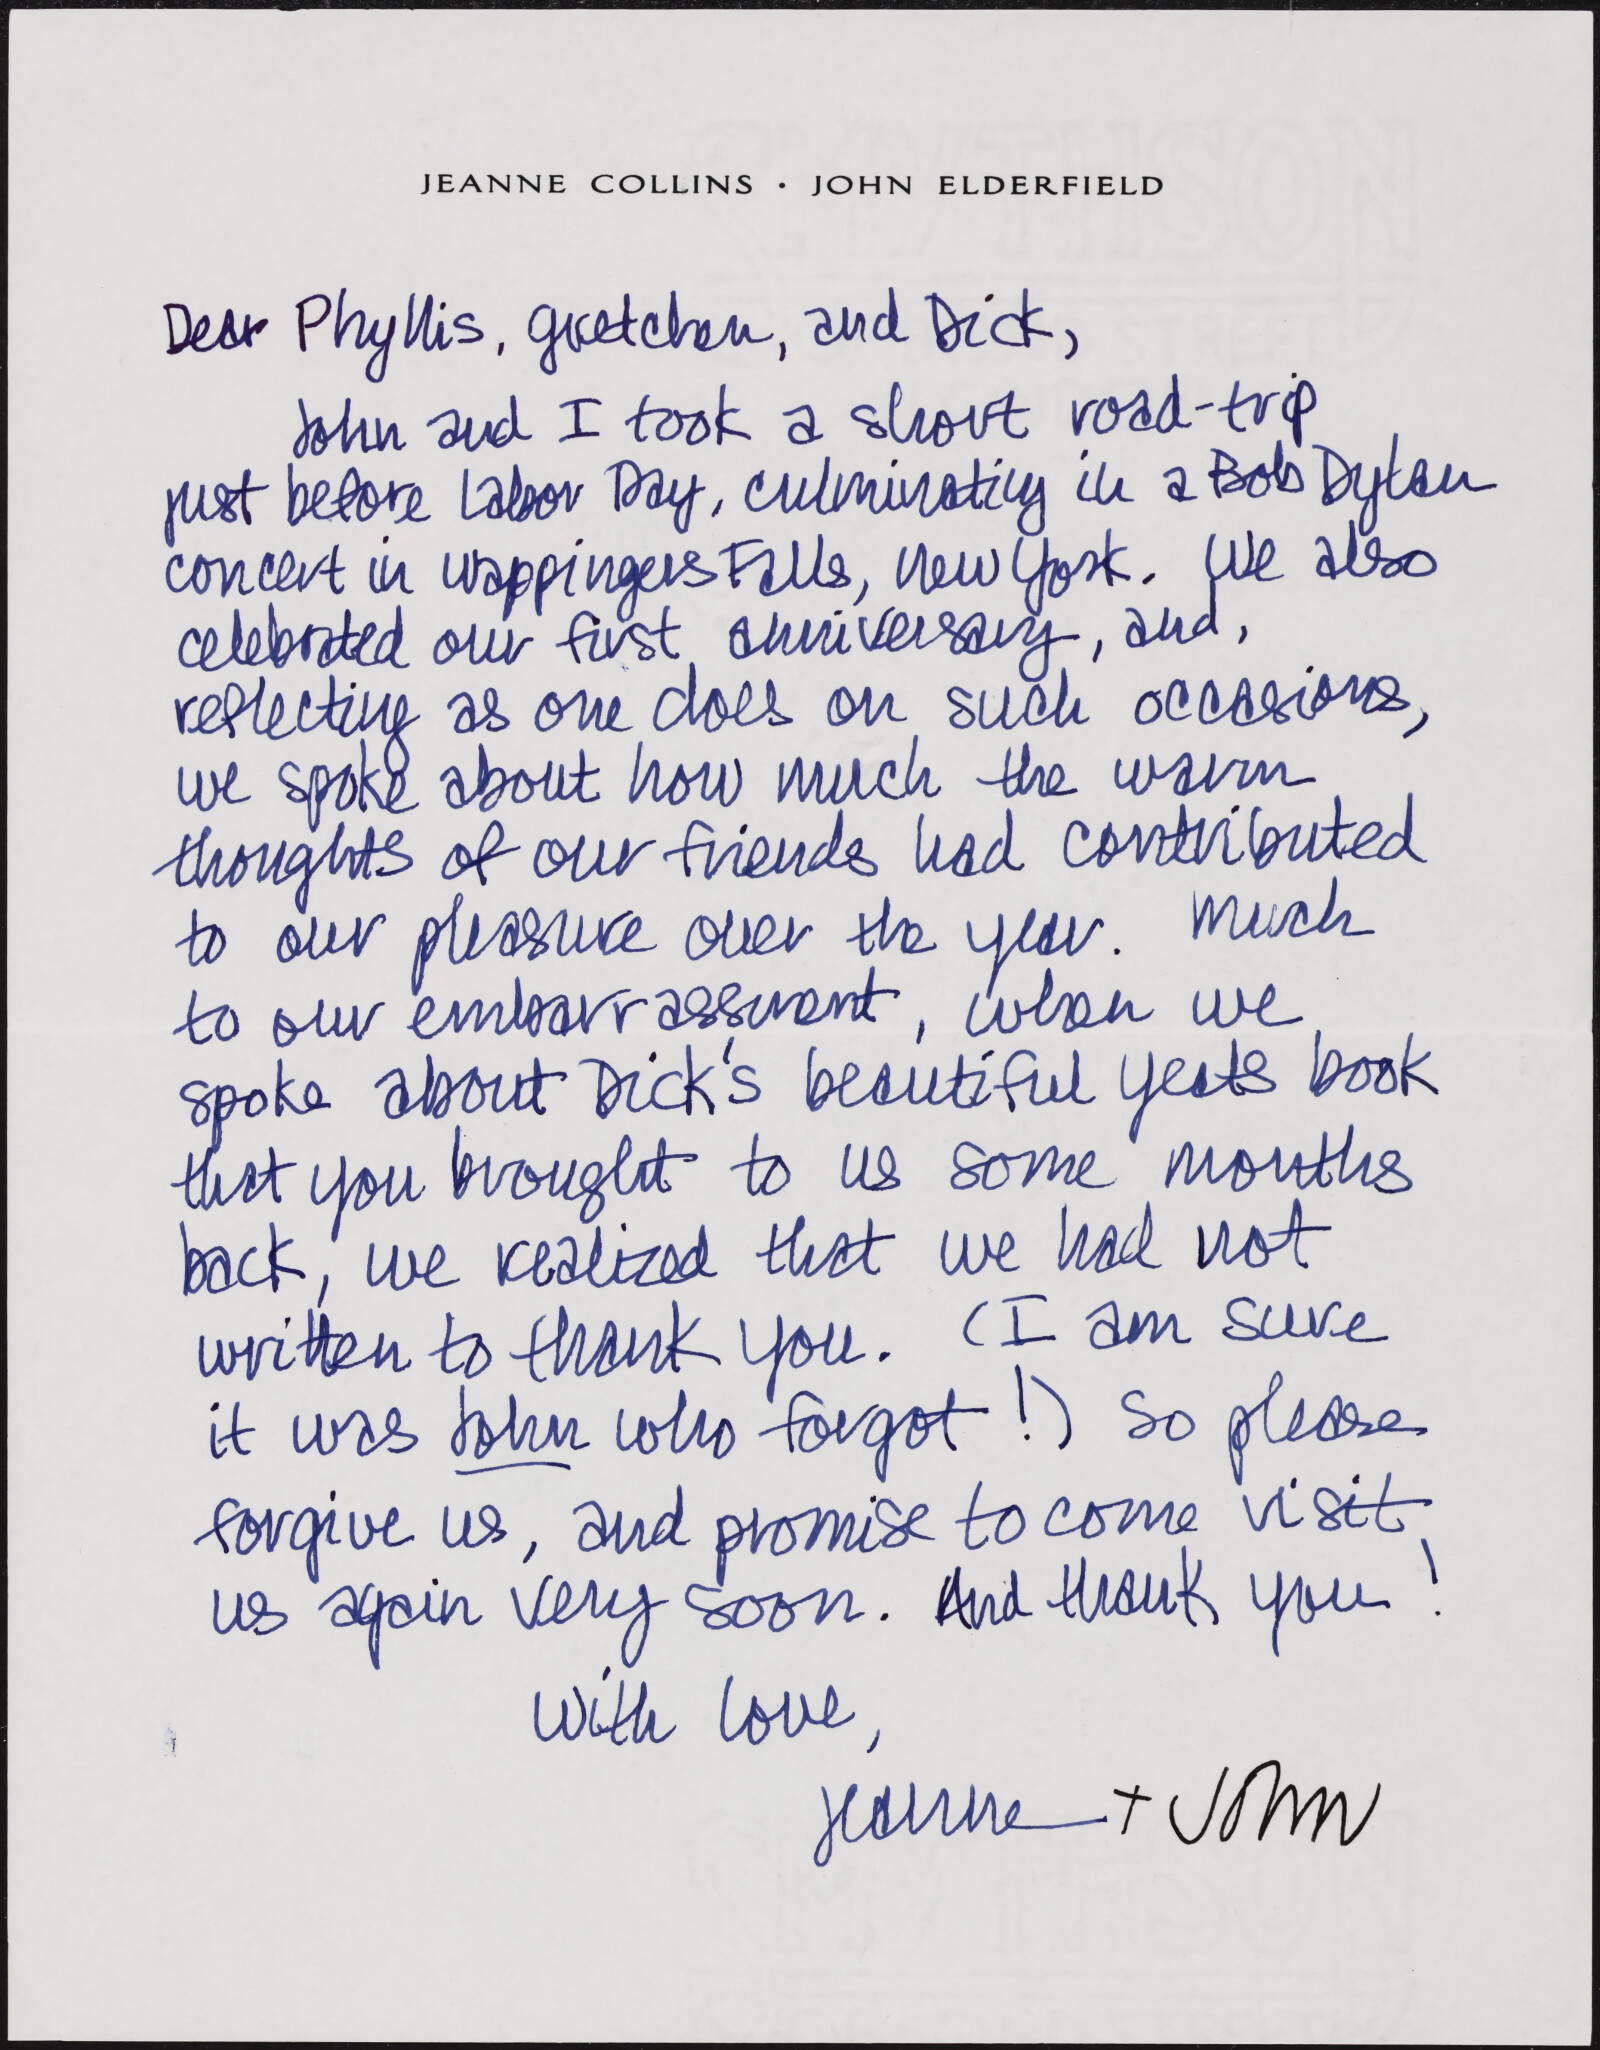 JEANNE COLLINS · JOHN ELDERFIELD
Dear Phyllis, Gretchen, and Dick,
John and I took a short road-trip
just before Labor Day, culminating in a Bob Dylan
concert in Wappingers Falls, New York. We also
celebrated our first anniversary, and,
reflecting as one does on such occasions,
we spoke about how much the warm
thoughts of our friends had contributed
to our pleasure over the year. Much
to our embarrassment, when we
spoke about Dick's beautiful Yeats book
that you brought to us some months
back, we realized that we had not
written to thank you. (I am sure
it was John who forgot!) So please
forgive us, and promise to come visit
us again very soon. And thank you!
With love,
Jeanne + John